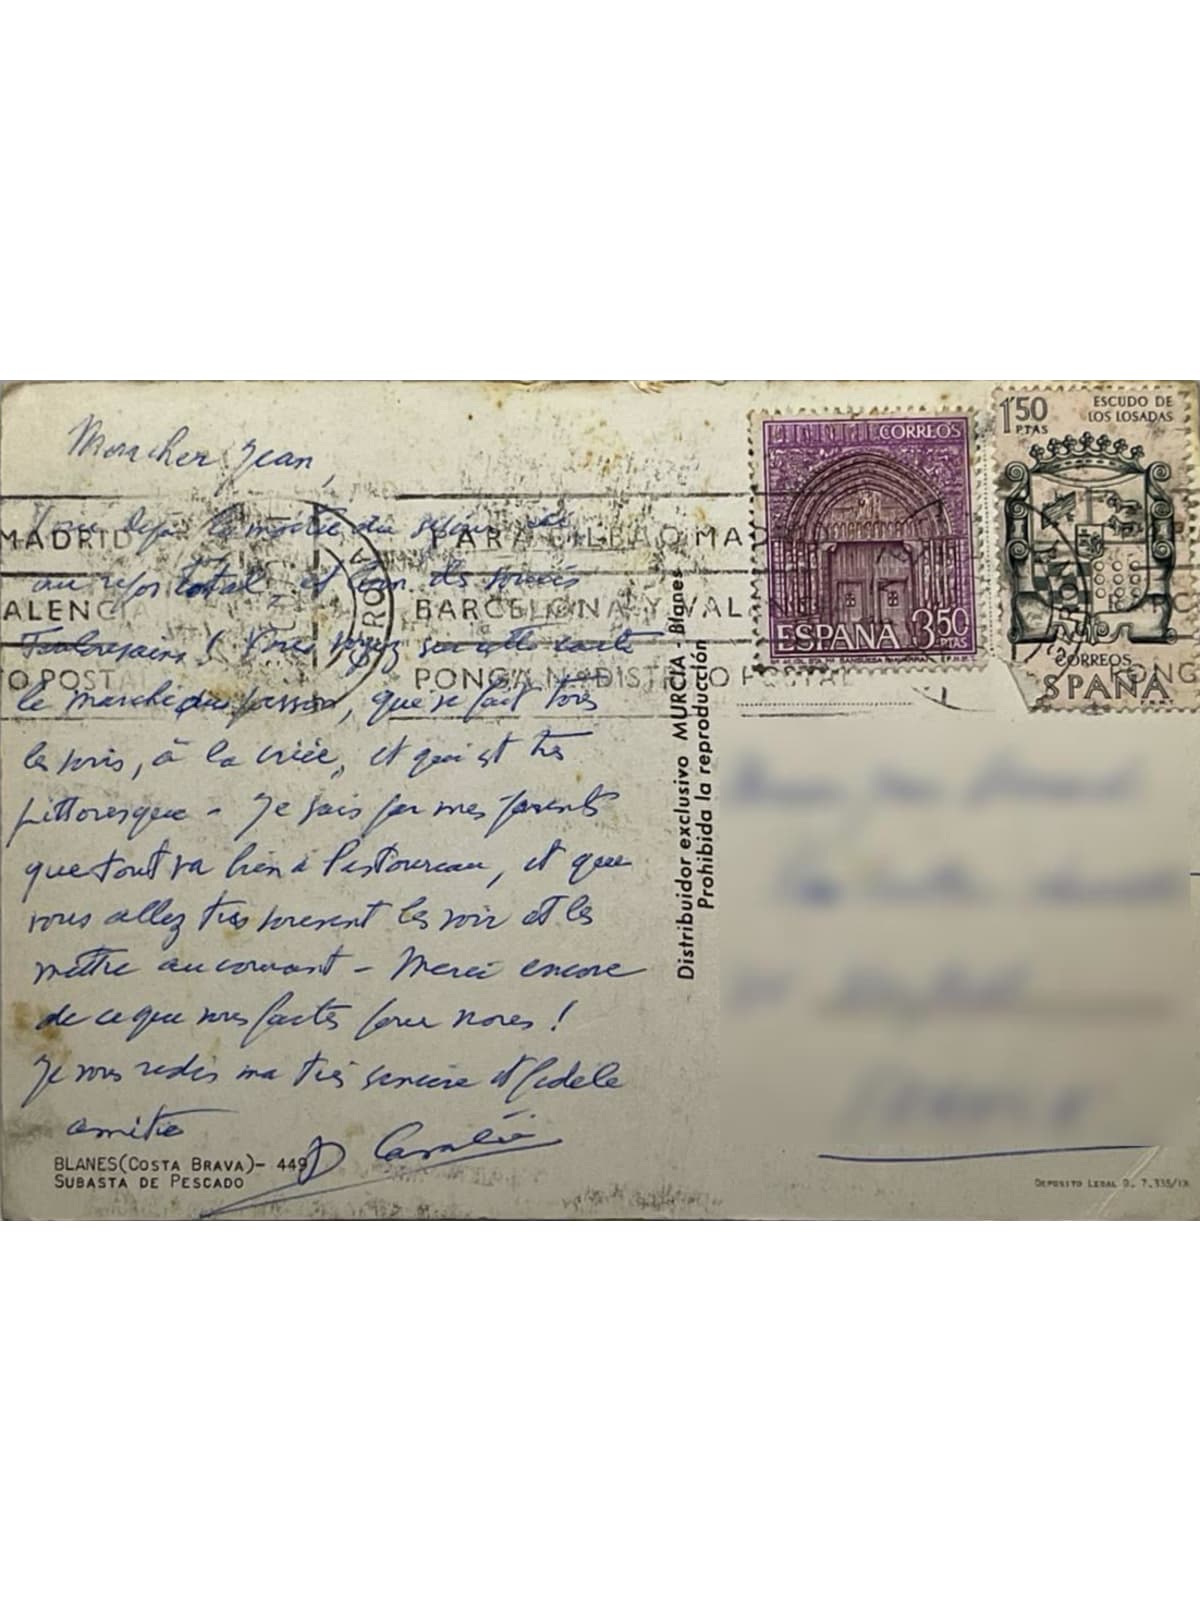 Mon cher Jean,
Déjà la moitié du séjour
au repos total, et loin des soucis
Toulousains ! Vous voyez sur cette carte
le marché au poisson, que se fait tous
les soirs, à la criée, et qui est très
pittoresque - Je sais par mes parents
que tout va bien à Pestoureau, et que
vous allez très souvent les voir et les
mettre au courant - Merci encore
de ce que vous faites pour nous !
Je vous redis ma très sincère et fidèle
amitié
BLANES (COSTA BRAVA) - 449
SUBASTA DE PESCADO
Distribuidor exclusivo MURCIA - Blanes
Prohibida la reproducción
CORREOS
ESPAÑA 3,50 PTAS
1'50 PTAS
ESCUDO DE
LOS LOSADAS
CORREOS
ESPAÑA
F.N.M.T.
MADRID
VALENCIA
PARA BILBAO MADRID
BARCELONA Y VALENCIA
PONGA Nº DISTRITO POSTAL
DEPOSITO LEGAL B. 7.335/IX